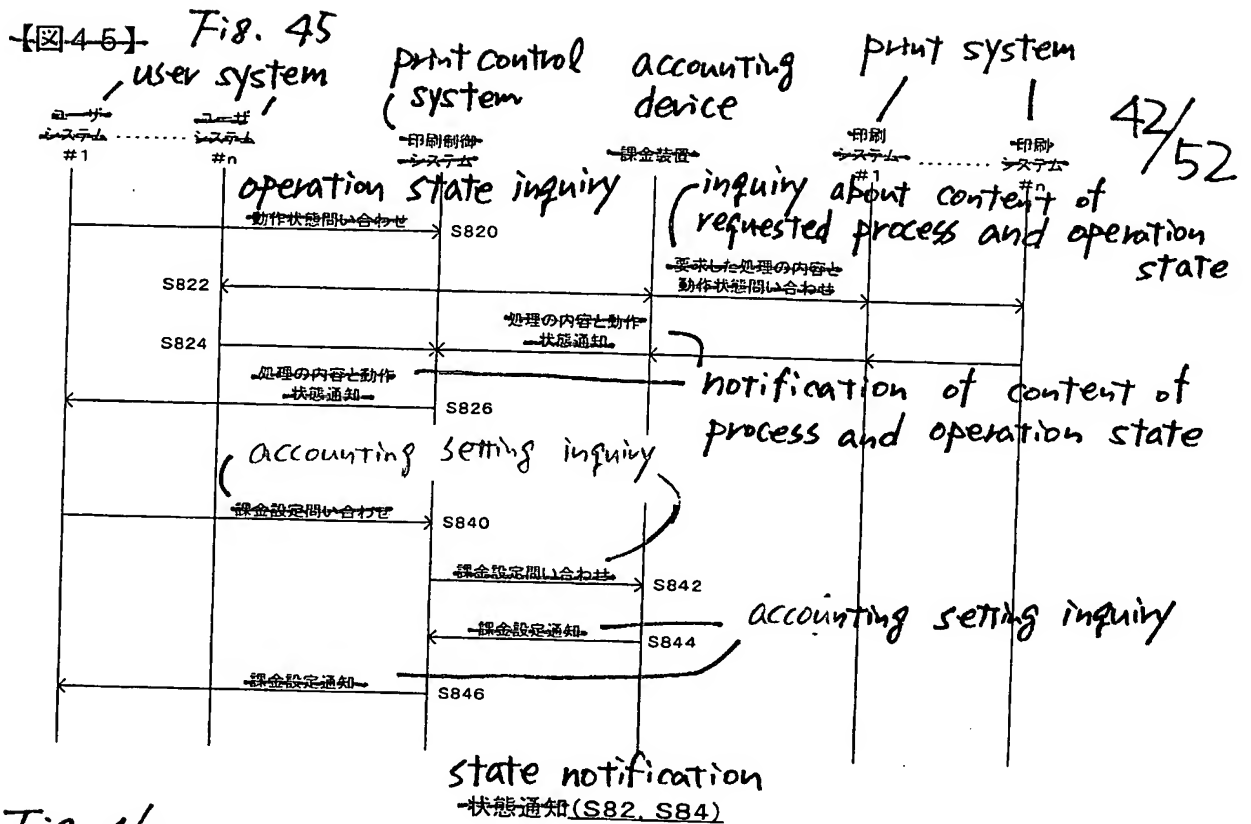 【図45】 Fig. 45
user system
print control system
accounting device
print system
42/52
ユーザシステム #1
ユーザシステム #n
印刷制御システム
課金装置
印刷システム #1
印刷システム #n
operation state inquiry
動作状態問い合わせ
S820
inquiry about content of
requested process and operation
state
要求した処理の内容と
動作状態問い合わせ
S822
処理の内容と動作
状態通知
S824
処理の内容と動作
状態通知
S826
notification of content of
process and operation state
accounting setting inquiry
課金設定問い合わせ
S840
課金設定問い合わせ
S842
accounting setting inquiry
課金設定通知
S844
課金設定通知
S846
state notification
状態通知(S82, S84)